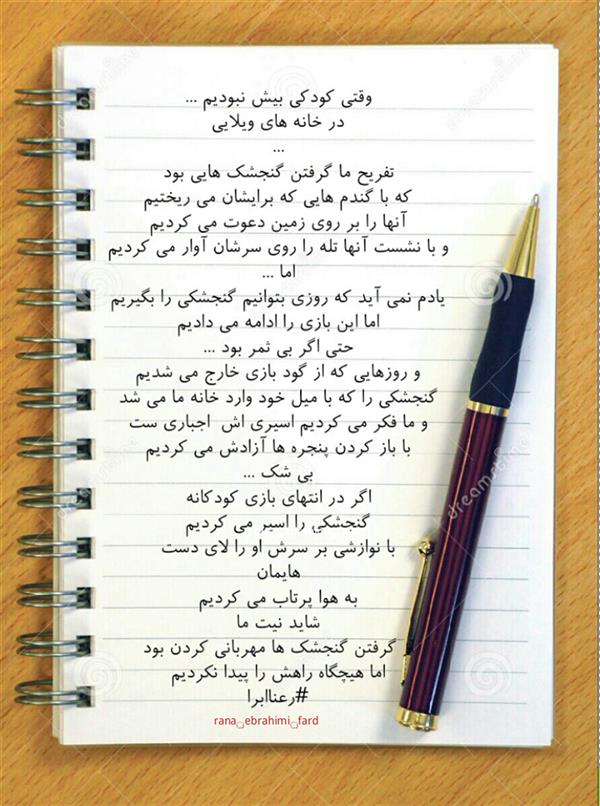 وقتی کودکی بیش نبودیم ...
در خانه های ویلایی
...
تفریح ما گرفتن گنجشک هایی بود
که با گندم هایی که برایشان می ریختیم
آنها را بر روی زمین دعوت می کردیم
و با نشست آنها تله را روی سرشان آوار می کردیم
اما ...
یادم نمی آید که روزی بتوانیم گنجشکی را بگیریم
اما این بازی را ادامه می دادیم
حتی اگر بی ثمر بود ...
و روزهایی که از گود بازی خارج می شدیم
گنجشکی را که با میل خود وارد خانه ما می شد
و ما فکر می کردیم اسیری اش اجباری ست
با باز کردن پنجره ها آزادش می کردیم
بی شک ...
اگر در انتهای بازی کودکانه
گنجشکی را اسیر می کردیم
با نوازشی بر سرش او را لای دست
هایمان
به هوا پرتاب می کردیم
شاید نیت ما
گرفتن گنجشک ها مهربانی کردن بود
اما هیچگاه راهش را پیدا نکردیم
#رعناابرا
rana_ebrahimi_fard
dreamstime